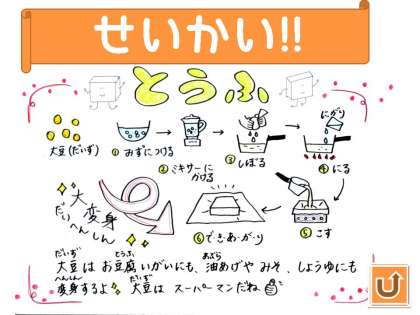 せいかい!!
とうふ
大豆(だいず)
① みずにつける
② ミキサーにかける
③ しぼる
にがり
④ にる
⑤ こす
⑥ できあがり
大変身
だいへんしん
だいず とうふ あぶら
大豆は お豆腐いがいにも、油あげや みそ、しょうゆにも
へんしん だいず
変身するよ 大豆は スーパーマンだね